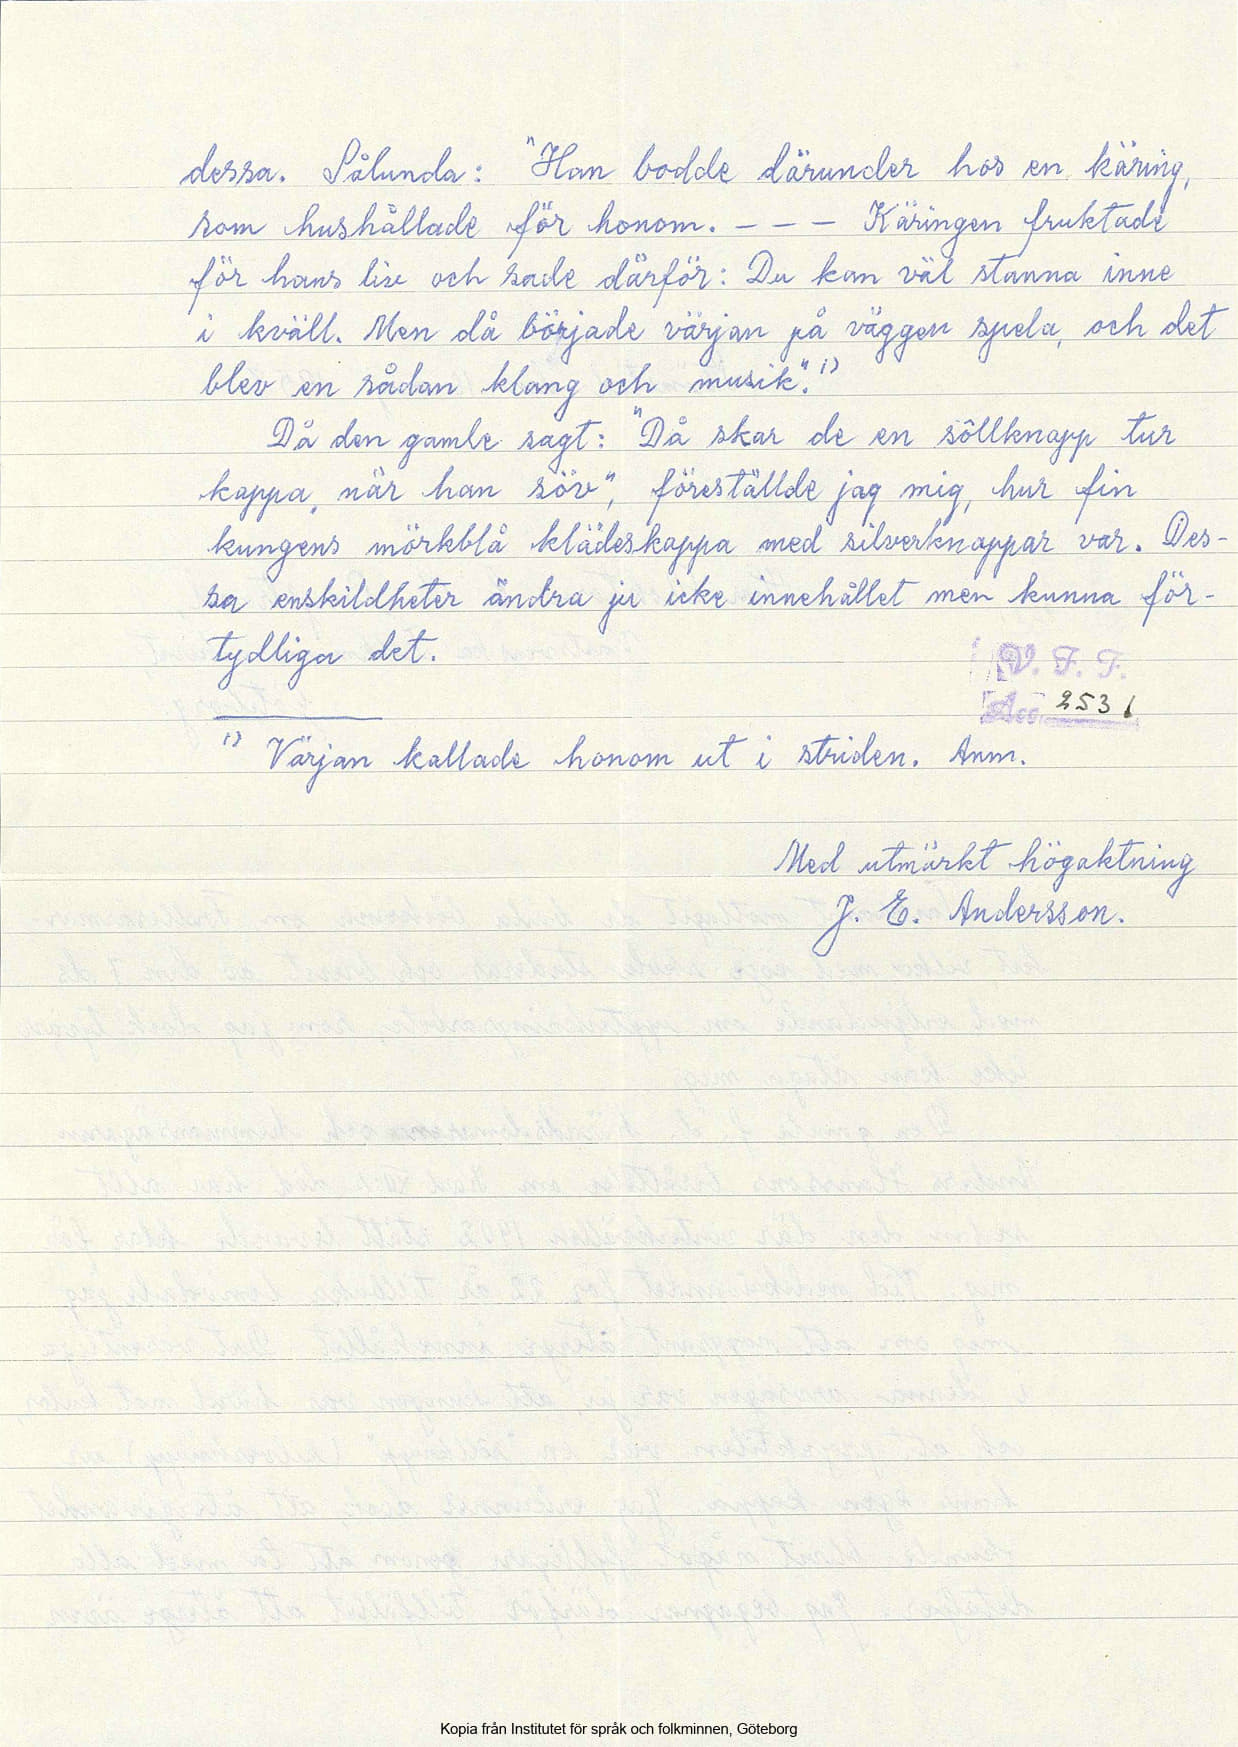 dessa. Sålunda: "Han bodde därunder hos en käring,
som hushållade för honom. - - - Käringen fruktade
för hans liv och sade därför: Du kan väl stanna inne
i kväll. Men då började värjan på väggen spela, och det
blev en sådan klang och musik". 1)
Då den gamle sagt: "Då skar de en söllknapp tur
kappa, när han söv", föreställde jag mig, hur fin
kungens mörkblå klädeskappa med silverknappar var. Des-
sa enskildheter ändra ju icke innehållet men kunna för-
tydliga det.
V. F. F.
Acc. 2531
1) Värjan kallade honom ut i striden. Anm.
Med utmärkt högaktning
J. E. Andersson.
Kopia från Institutet för språk och folkminnen, Göteborg